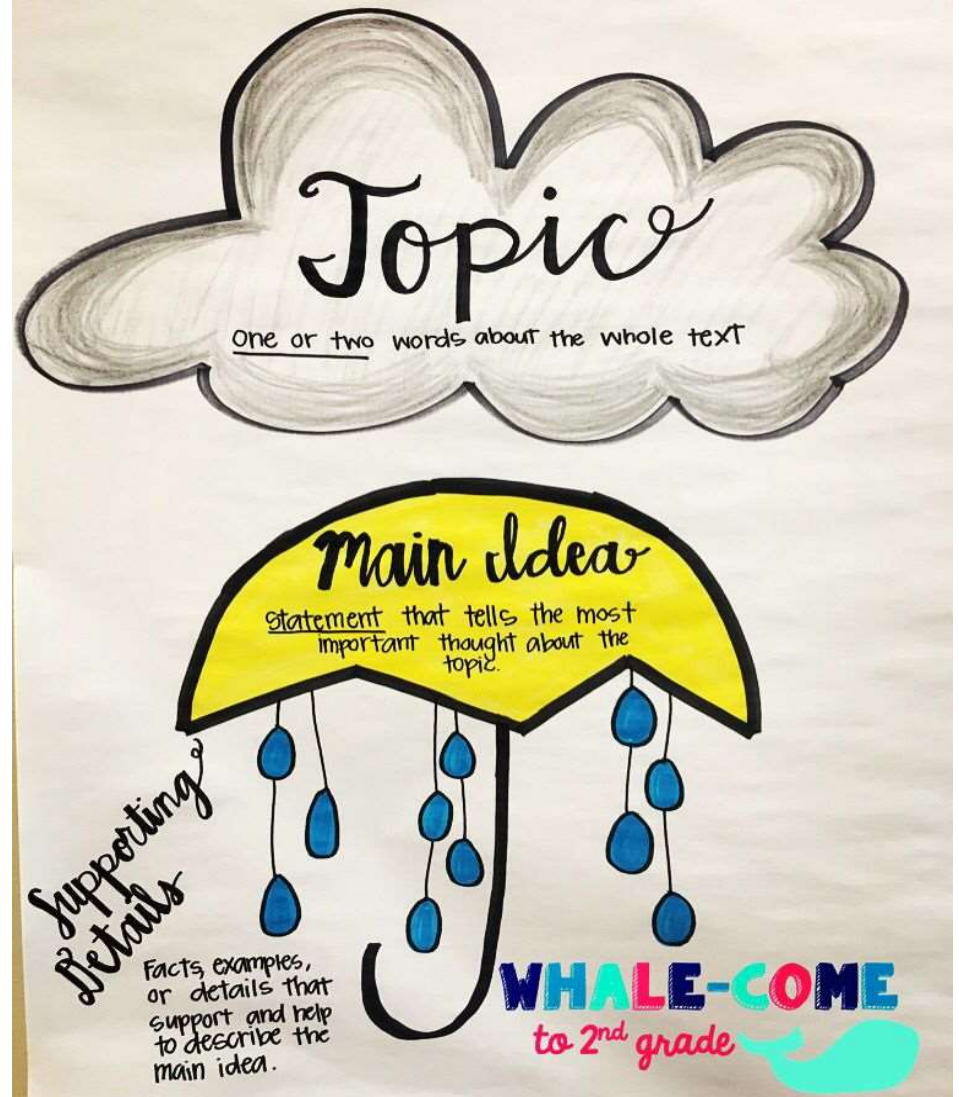 Topic
one or two words about the whole text
Main Idea
Statement that tells the most
important thought about the
topic.
Supporting
Details
Facts, examples,
or details that
support and help
to describe the
main idea.
WHALE-COME
to 2nd grade